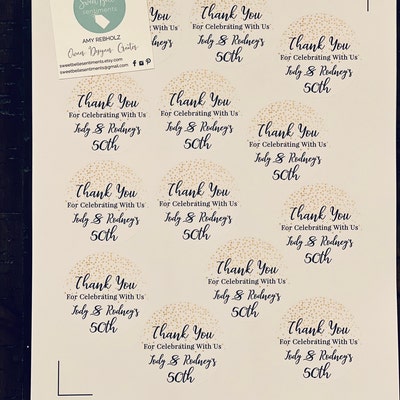 Sweet Belle
sentiments
AMY REBHOLZ
Owner Designer Creator
sweetbellesentiments.etsy.com
sweetbellesentiments@gmail.com
You
With Us
Rodney's
50th
Thank You
For Celebrating With Us
Jody & Rodney's
50th
Thank You
For Celebrating With Us
Jody & Rodney's
50th
Thank You
For Celebrating With Us
Jody & Rodney's
50th
Thank You
For Celebrating With Us
Jody & Rodney's
50th
Thank You
For Celebrating With Us
Jody & Rodney's
50th
Thank You
For Celebrating With Us
Jody & Rodney's
50th
Thank You
For Celebrating With Us
Jody & Rodney's
50th
Thank You
For Celebrating With Us
Jody & Rodney's
50th
Thank You
For Celebrating With Us
Jody & Rodney's
50th
Thank You
For Celebrating With Us
Jody & Rodney's
50th
Thank You
For Celebrating With Us
Jody & Rodney's
50th